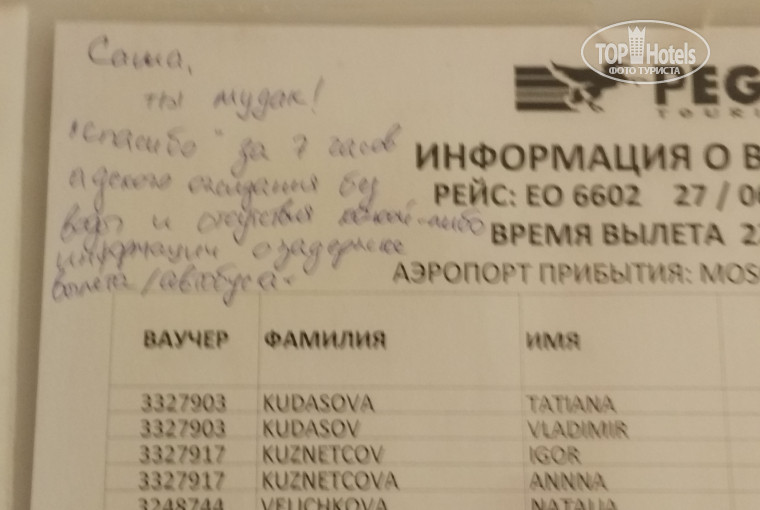 TOP Hotels
ФОТО ТУРИСТА
Саша,
ты мудак!
"Спасибо" за 7 часов
адского ожидания без
воды и отсутствия какой-либо
информации о задержке
вылета/автобуса.
PEG
TOUR
ИНФОРМАЦИЯ О В
РЕЙС: EO 6602 27 / 0
ВРЕМЯ ВЫЛЕТА 2
АЭРОПОРТ ПРИБЫТИЯ: MOS
ВАУЧЕР ФАМИЛИЯ ИМЯ
3327903 KUDASOVA TATIANA
3327903 KUDASOV VLADIMIR
3327917 KUZNETCOV IGOR
3327917 KUZNETCOVA ANNNA
3248744 VELICHKOVA NATALIA